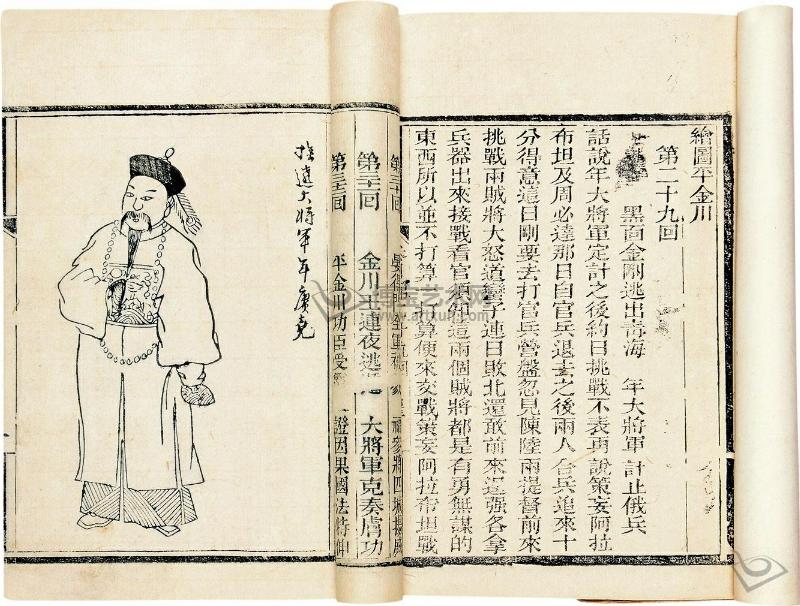 繪圖平金川
第二十九回
黑面金剛逃出青海 年大將軍計止俄兵
話說年大將軍定計之後約日挑戰不表再說策妄阿拉
布坦及周必達那日自官兵退去之後兩人合兵追來十
分得意這日剛要去打官兵營盤忽見陳陸兩提督前來
挑戰兩賊將大怒道蠻子連日敗北還敢前來逞强各拿
兵器出來接戰看官須知這兩個賊將都是有勇無謀的
東西所以並不打算打算便來交戰策妄阿拉布坦戰
第三十回
第三十一回 金川王連夜逃 大將軍克奏膚功
第三十二回 平金川功臣受 證因果國法待伸
撫遠大將軍年庚堯
博宝艺术网
www.artxun.com